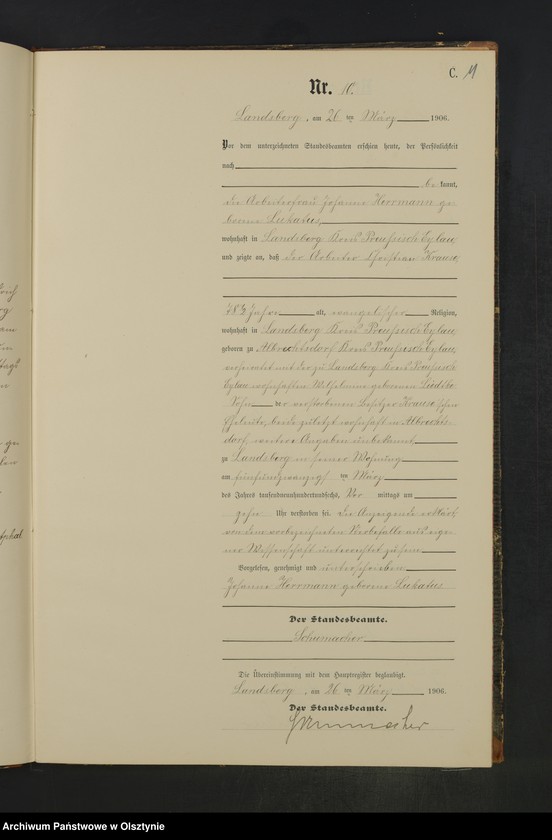 C. 11
Nr. 10.
Landsberg, am 26 ten März 1906.
Vor dem unterzeichneten Standesbeamten erschien heute, der Persönlichkeit
nach
be kannt,
die Arbeiterfrau Johanne Herrmann ge
borene Lukatus,
wohnhaft in Landsberg Kreis Preußisch Eylau,
und zeigte an, daß der Arbeiter Christian Krause,
78½ Jahre alt, evangelischer Religion,
wohnhaft in Landsberg Kreis Preußisch Eylau,
geboren zu Albrechtsdorf Kreis Preußisch Eylau,
verheiratet mit der zu Landsberg Kreis Preußisch
Eylau wohnhaften Wilhelmine geborenen
Sohn der verstorbenen Besitzer Krause'schen
Eheleute, beide zuletzt wohnhaft in Albrechts-
dorf, weitere Angaben unbekannt,
zu Landsberg in seiner Wohnung
am fünfundzwanzigsten ten März
des Jahres tausendneunhundertsechs, Vor mittags um
zehn Uhr verstorben sei. Die Anzeigende erklärte,
von dem vorbezeichneten Sterbefalle aus eige-
ner Wissenschaft unterrichtet zu sein.
Vorgelesen, genehmigt und unterschrieben
Johanne Herrmann geborene Lukatus
Der Standesbeamte.
Schumacher
Die Übereinstimmung mit dem Hauptregister beglaubigt.
Landsberg, am 26 ten März 1906.
Der Standesbeamte.
Schumacher
Archiwum Państwowe w Olsztynie